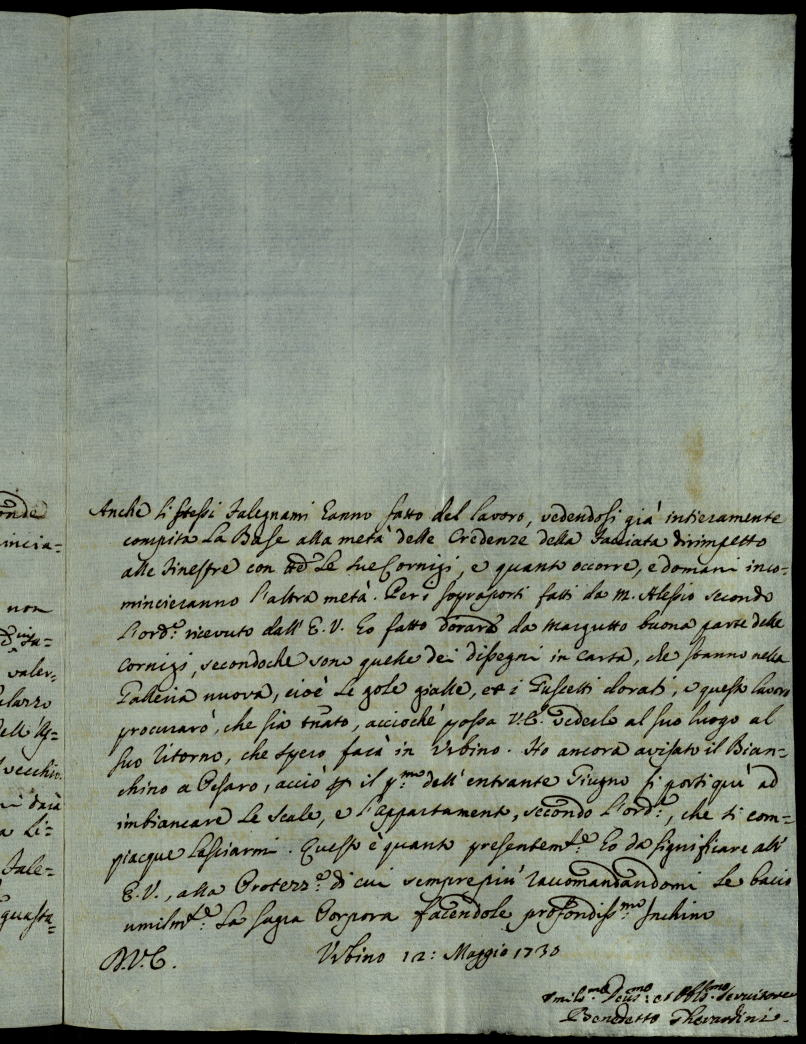 Anche li stessi falegnami hanno fatto del lavoro, vedendosi già intieramente
compita la Base alla metà delle Credenze della Facciata dirimpetto
alle finestre con tte le sue Cornigi, e quant' occorre, e domani inco-
mincieranno l'altra metà. Per i sopraporti fatti da m. Alessio secondo
l'ord.e ricevuto dall' E. V. ho fatto dorare da Margutto buona parte delle
Cornigi, secondoche sono quelle dei disegni in carta, che stanno nella
Galleria nuova, cioè le gole gialle, et i Guscetti dorati, e questo lavoro
procurarò, che sia t'nato, accioché possa V.E. vederlo al suo luogo al
suo ritorno, che spero farà in Urbino. Ho ancora avisato il Bian-
chino a Pesaro, acciò p il p.mo dell' entrante Giugno si porti quì ad
imbiancare le scale, e l'appartament.o, secondo l'ord.e, che si com-
piacque lasciarmi. Quest' è quanto presentem.te ho da significare all'
E. V., alla Protezz.e di cui semprepiù raccomandandomi le bacio
umilm.te la sagra Porpora facendole profondiss.mo Inchino
D.V.E. Urbino 12: Maggio 1730
Umilis.mo Deus.mo et Obl.mo Servitore
Benedetto Gherardini
onde
incia-
non
valer-
dell'
vecchio.
dará
a Li-
Fale-
questa-